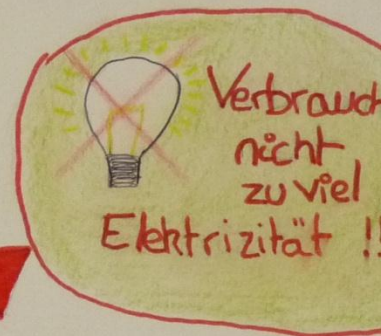 Verbrauch
nicht
zu viel
Elektrizität !!